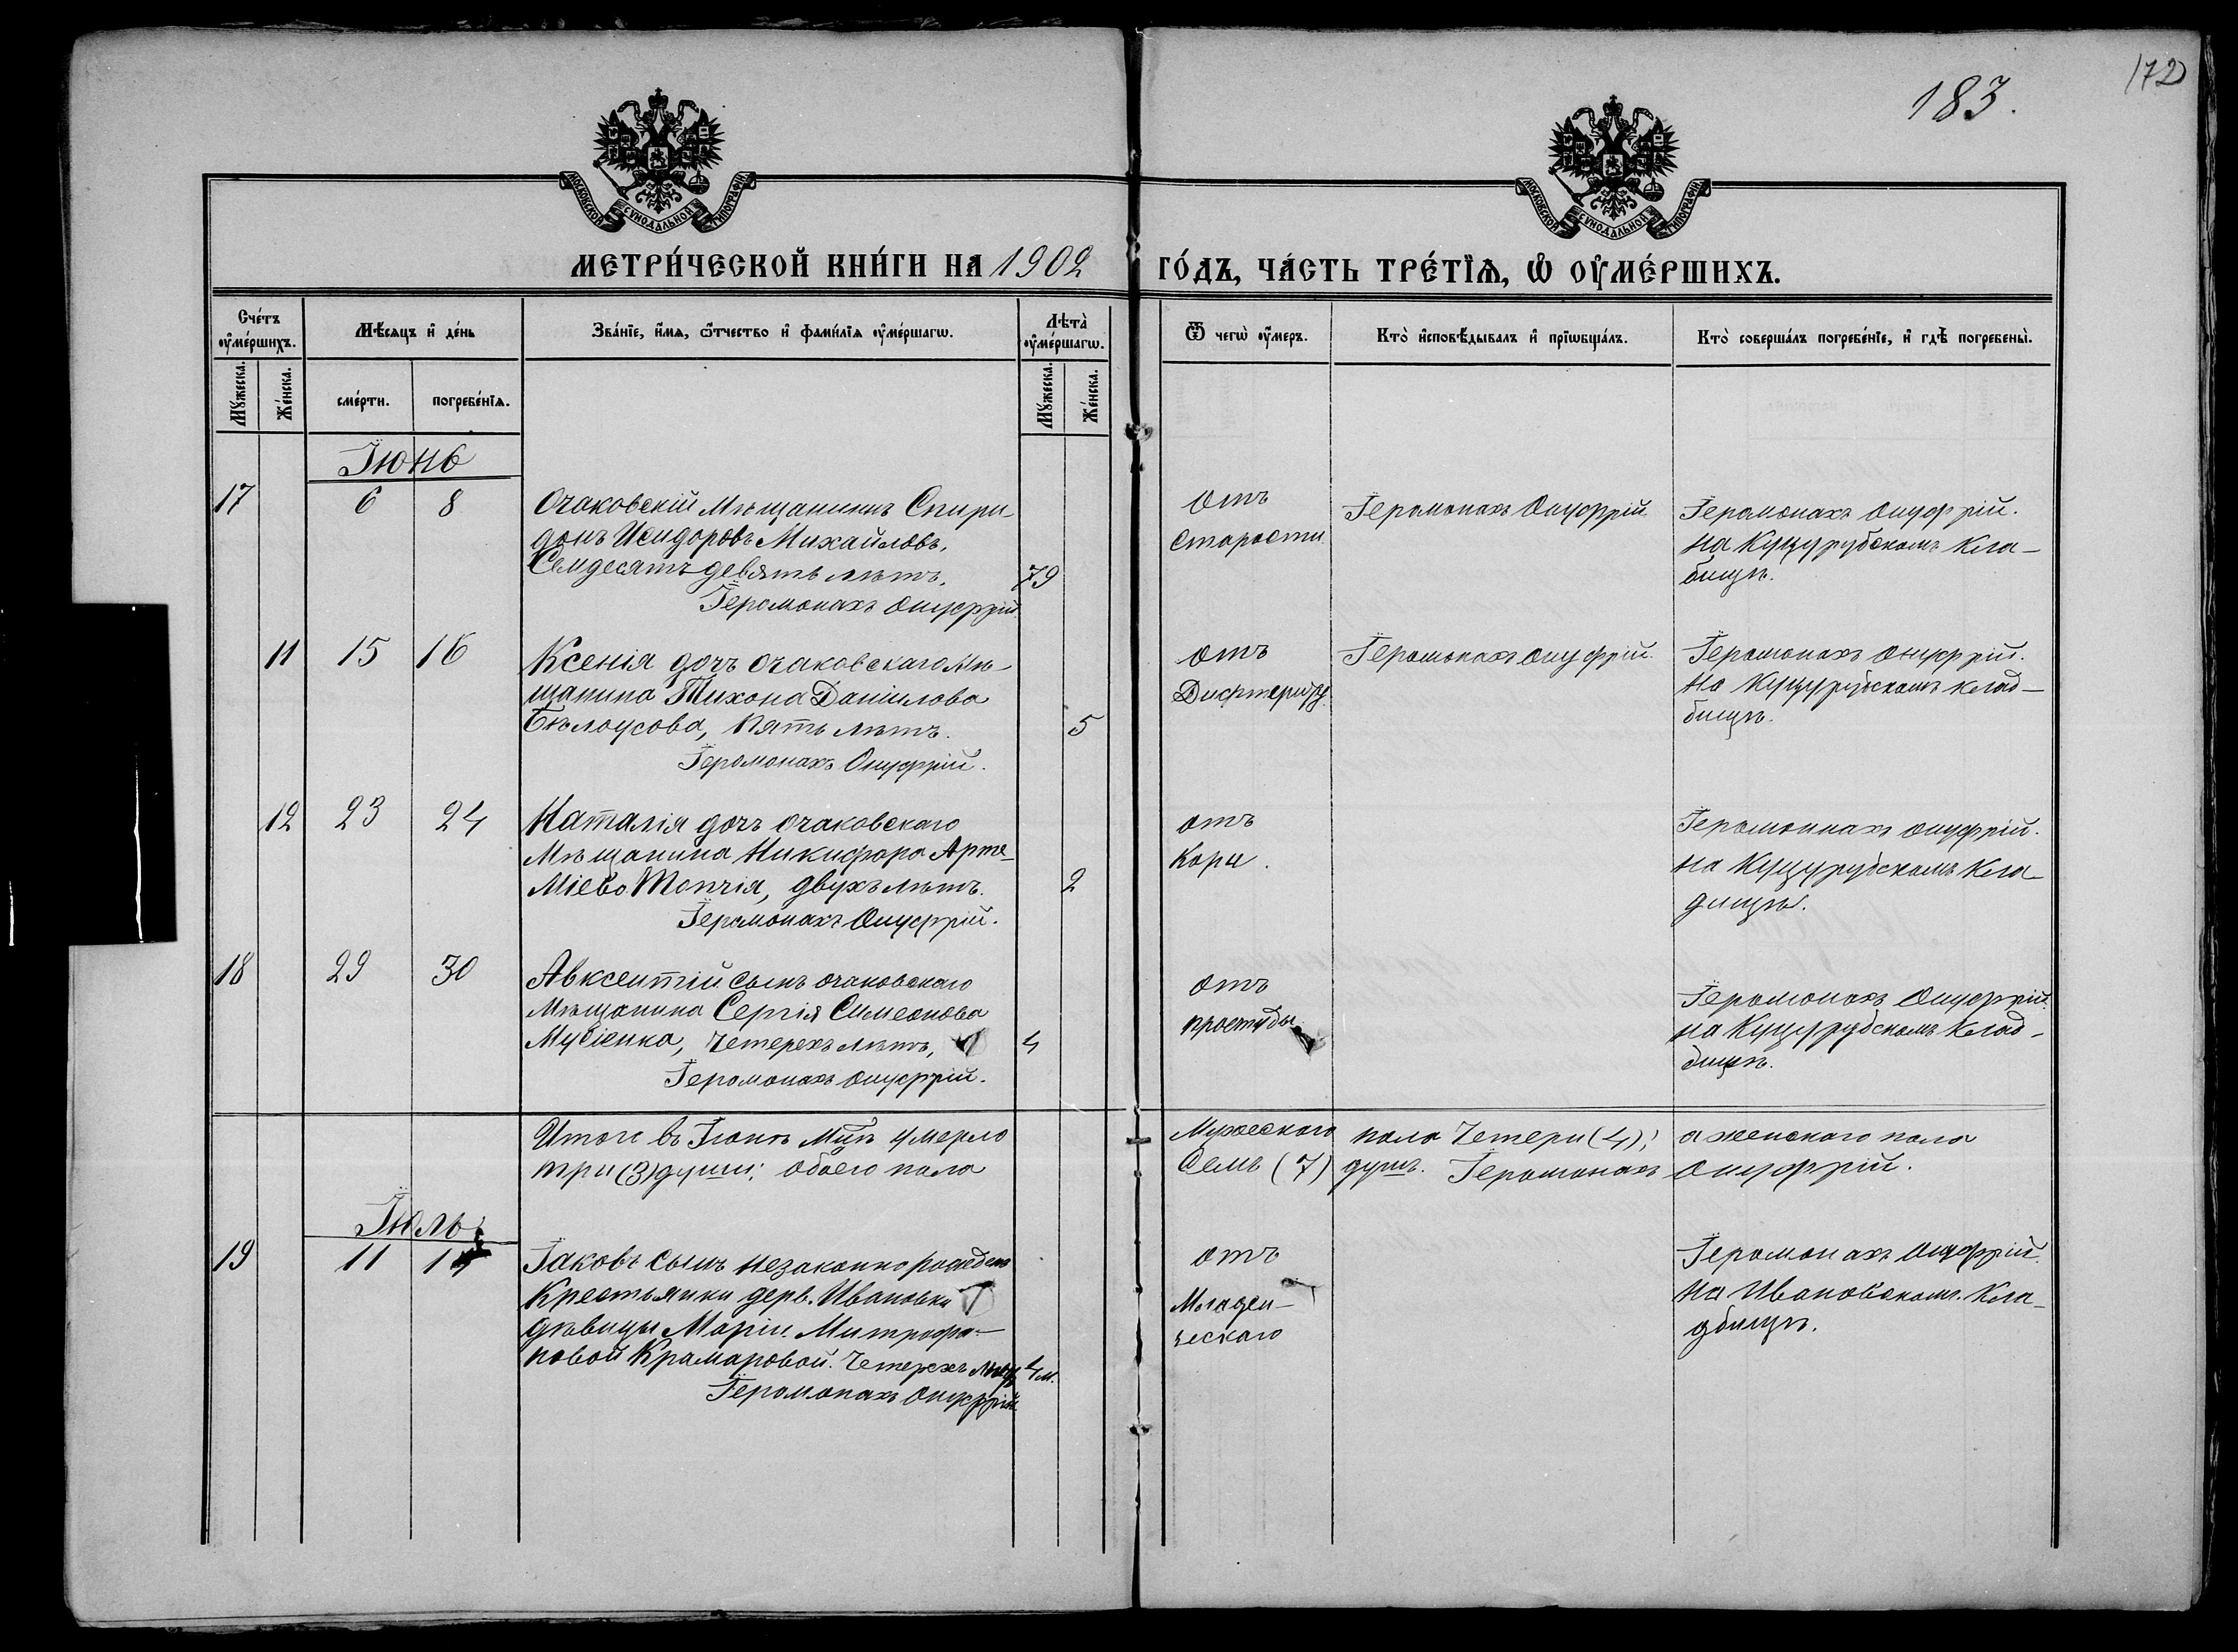 172
183.
МОСКОВСКОЙ СѴНОДАЛЬНОЙ ТИПОГРАФІИ
МОСКОВСКОЙ СѴНОДАЛЬНОЙ ТИПОГРАФІИ
МЕТРИ́ЧЕСКОЙ КНИ́ГИ НА 1902 ГО́ДЪ, ЧА́СТЬ ТРЕ́ТЇѦ, Ѡ҆ ОУ҆МЕ́РШИХЪ.
Сче́тъ оу҆ме́ршихъ.
Мѣ́сяцъ и҆ де́нь
Зва́нїе, и҆́мѧ, ѻ҆́тчество и҆ фами́лїѧ оу҆ме́ршагѡ.
Лѣта̀ оу҆ме́ршагѡ.
Ѿ чегѡ̀ оу҆́меръ.
Кто̀ и҆сповѣ́дывалъ и҆ прїѡбща́лъ.
Кто̀ соверша́лъ погребе́нїе, и҆ гдѣ̀ погребены̀.
Мꙋ́жеска.
Же́нска.
сме́рти.
погребе́нїѧ.
Мꙋ́жеска.
Же́нска.
Іюнь
17 6 8 Очаковскій Мѣщанинъ Спири-
донъ Исидоровъ Михайловъ,
Семдесятъ девять лѣтъ. 79
Іеромонахъ Онуфрій
отъ
старости
Іеромонахъ Онуфрій
Іеромонахъ Онуфрій.
на Куцурубскомъ кла-
бищѣ.
11 15 16 Ксенія дочь очаковскаго мѣ-
щанина Тихона Даніилова
Бѣлоусова, пять лѣтъ. 5
Іеромонахъ Онуфрій.
отъ
Дифтериту.
Іеромонахъ Онуфрій.
Іеромонахъ Онуфрій.
на Куцурубскомъ клад-
бищѣ.
12 23 24 Наталія дочь очаковскаго
Мѣщанина Никифора Арте-
міева Топчія, двухъ лѣтъ. 2
Іеромонахъ Онуфрій.
отъ
Кори.
Іеромоннахъ Онуфрій.
на Куцурубскомъ Кла-
дищѣ.
18 29 30 Авксентій сынъ очаковскаго
мѣщанина Сергія Симеонова
Мусіенка, четерехъ лѣтъ, 4
Іеромонахъ Онуфрій.
отъ
простуды.
Іеромонахъ Онуфрій.
на Куцурубскомъ клад-
бищѣ.
Итого въ Іюнѣ мцѣ умерло Мужескаго пола четери (4); а женскаго пола
три (3) души; обоего пола Семь (7) душъ. Іеромонахъ Онуфрій.
Іюль
19 11 Іаковъ сынъ незаконно рожден
Крестьянки дерв. Ивановки
дѣвицы Маріи Митрофа-
новой Крамаровой. Четерехъ мѣц 4 м.
Іеромонахъ Онуфрій
отъ
Младен-
ческаго
Іеромонахъ Онуфрій.
на Ивановскомъ Кла-
дбищѣ.